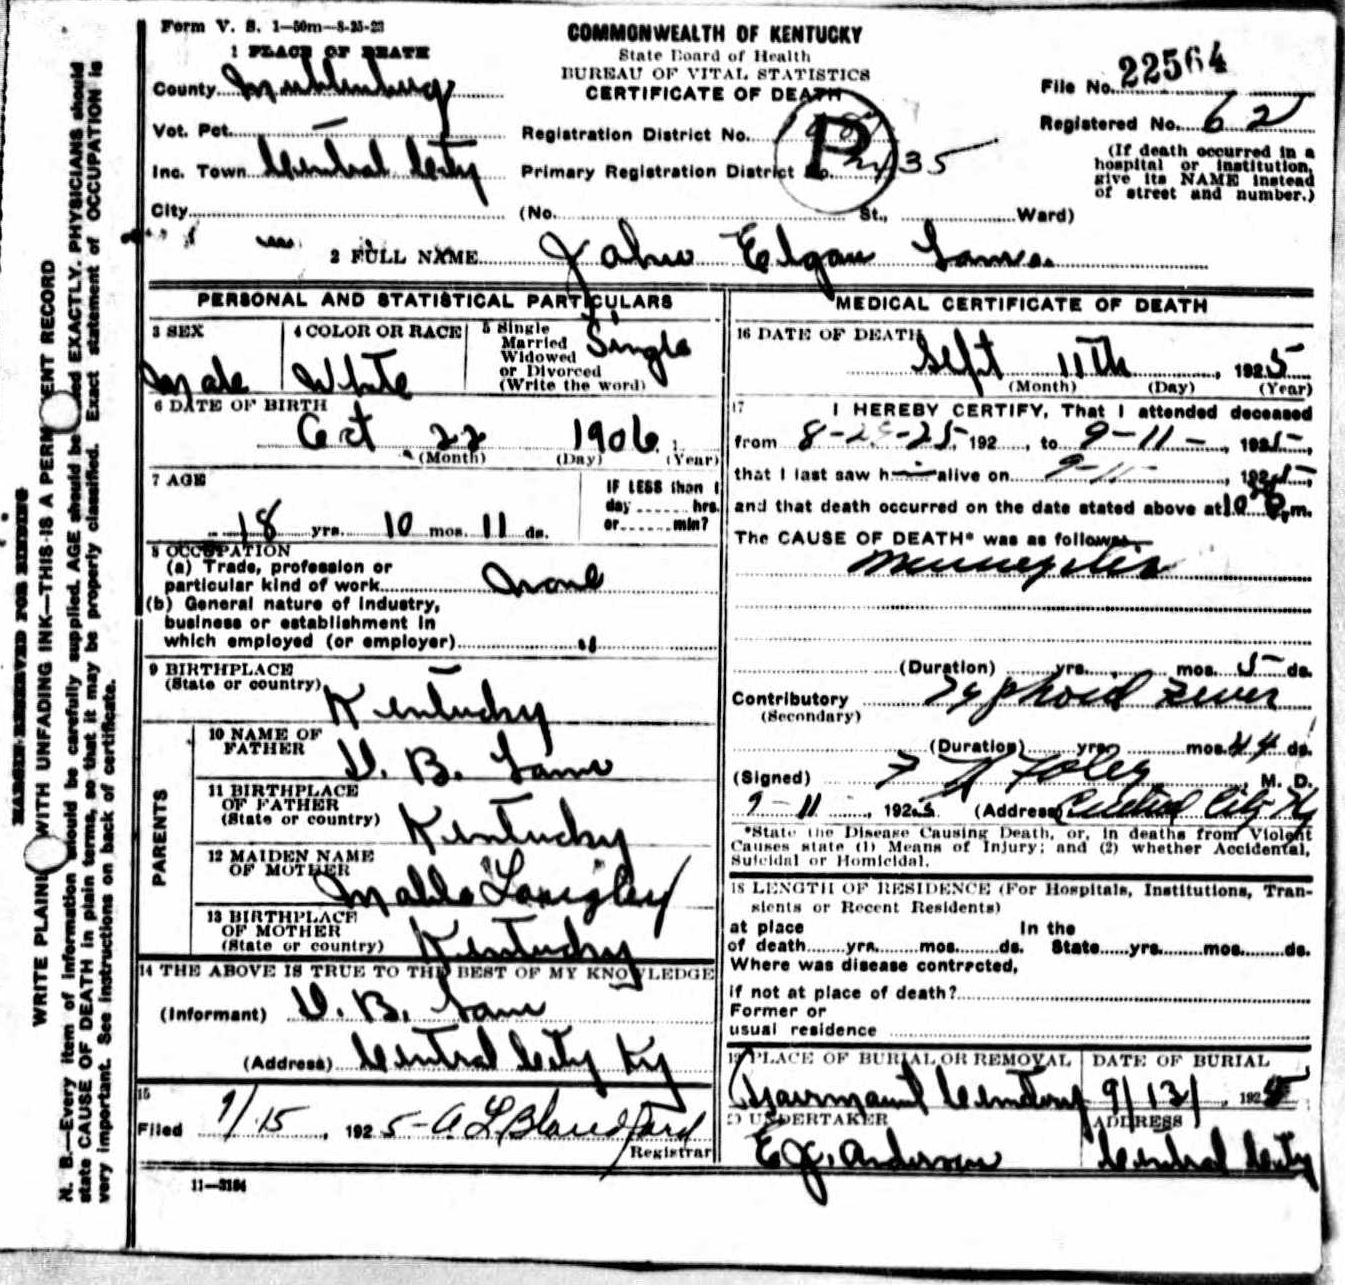 Form V. S. 1—50m—8-25-23
COMMONWEALTH OF KENTUCKY
State Board of Health
BUREAU OF VITAL STATISTICS
CERTIFICATE OF DEATH
1 PLACE OF DEATH
County
Vot. Pct. —
Inc. Town Central City
City
Registration District No.
Primary Registration District No. 2435
P
(No. St., Ward)
File No. 22564
Registered No. 62
(If death occurred in a
hospital or institution,
give its NAME instead
of street and number.)
2 FULL NAME Elgan
PERSONAL AND STATISTICAL PARTICULARS
3 SEX
Male
4 COLOR OR RACE
White
5 Single
Married
Widowed
or Divorced
(Write the word)
Single
6 DATE OF BIRTH
Oct 22 1906
(Month) (Day) (Year)
7 AGE
18 yrs. 10 mos. 11 ds.
IF LESS than 1
day hrs.
or min?
8 OCCUPATION
(a) Trade, profession or
particular kind of work None
(b) General nature of Industry,
business or establishment in
which employed (or employer) "
9 BIRTHPLACE
(State or country)
Kentucky
PARENTS
10 NAME OF
FATHER
B.
11 BIRTHPLACE
OF FATHER
(State or country)
Kentucky
12 MAIDEN NAME
OF MOTHER
Langley
13 BIRTHPLACE
OF MOTHER
(State or country)
Kentucky
14 THE ABOVE IS TRUE TO THE BEST OF MY KNOWLEDGE
(Informant) B.
(Address) Central City Ky
15
Filed 9/15, 1925 A. L. Blandford
Registrar
11—3184
MEDICAL CERTIFICATE OF DEATH
16 DATE OF DEATH
Sept 11th, 1925
(Month) (Day) (Year)
17 I HEREBY CERTIFY, That I attended deceased
from 192, to 9-11-, 1925,
that I last saw h alive on 9-11-, 1925,
and that death occurred on the date stated above at m.
The CAUSE OF DEATH* was as follows:
(Duration) yrs. mos. 5 ds.
Contributory Typhoid Fever
(Secondary)
(Duration) yrs. mos. 44 ds.
(Signed) Foley, M. D.
9-11, 1925 (Address) Central City Ky
*State the Disease Causing Death, or, in deaths from Violent
Causes state (1) Means of Injury; and (2) whether Accidental,
Suicidal or Homicidal.
18 LENGTH OF RESIDENCE (For Hospitals, Institutions, Tran-
sients or Recent Residents)
at place In the
of death yrs. mos. ds. State yrs. mos. ds.
Where was disease contracted,
if not at place of death?
Former or
usual residence
19 PLACE OF BURIAL OR REMOVAL
Cemetery
DATE OF BURIAL
9/12/, 1925
20 UNDERTAKER
E. J. Anderson
ADDRESS
Central City
MARGIN RESERVED FOR BINDING
WRITE PLAINLY WITH UNFADING INK—THIS IS A PERMANENT RECORD
N. B.—Every item of information should be carefully supplied. AGE should be stated EXACTLY. PHYSICIANS should
state CAUSE OF DEATH in plain terms, so that it may be properly classified. Exact statement of OCCUPATION is
very important. See instructions on back of certificate.